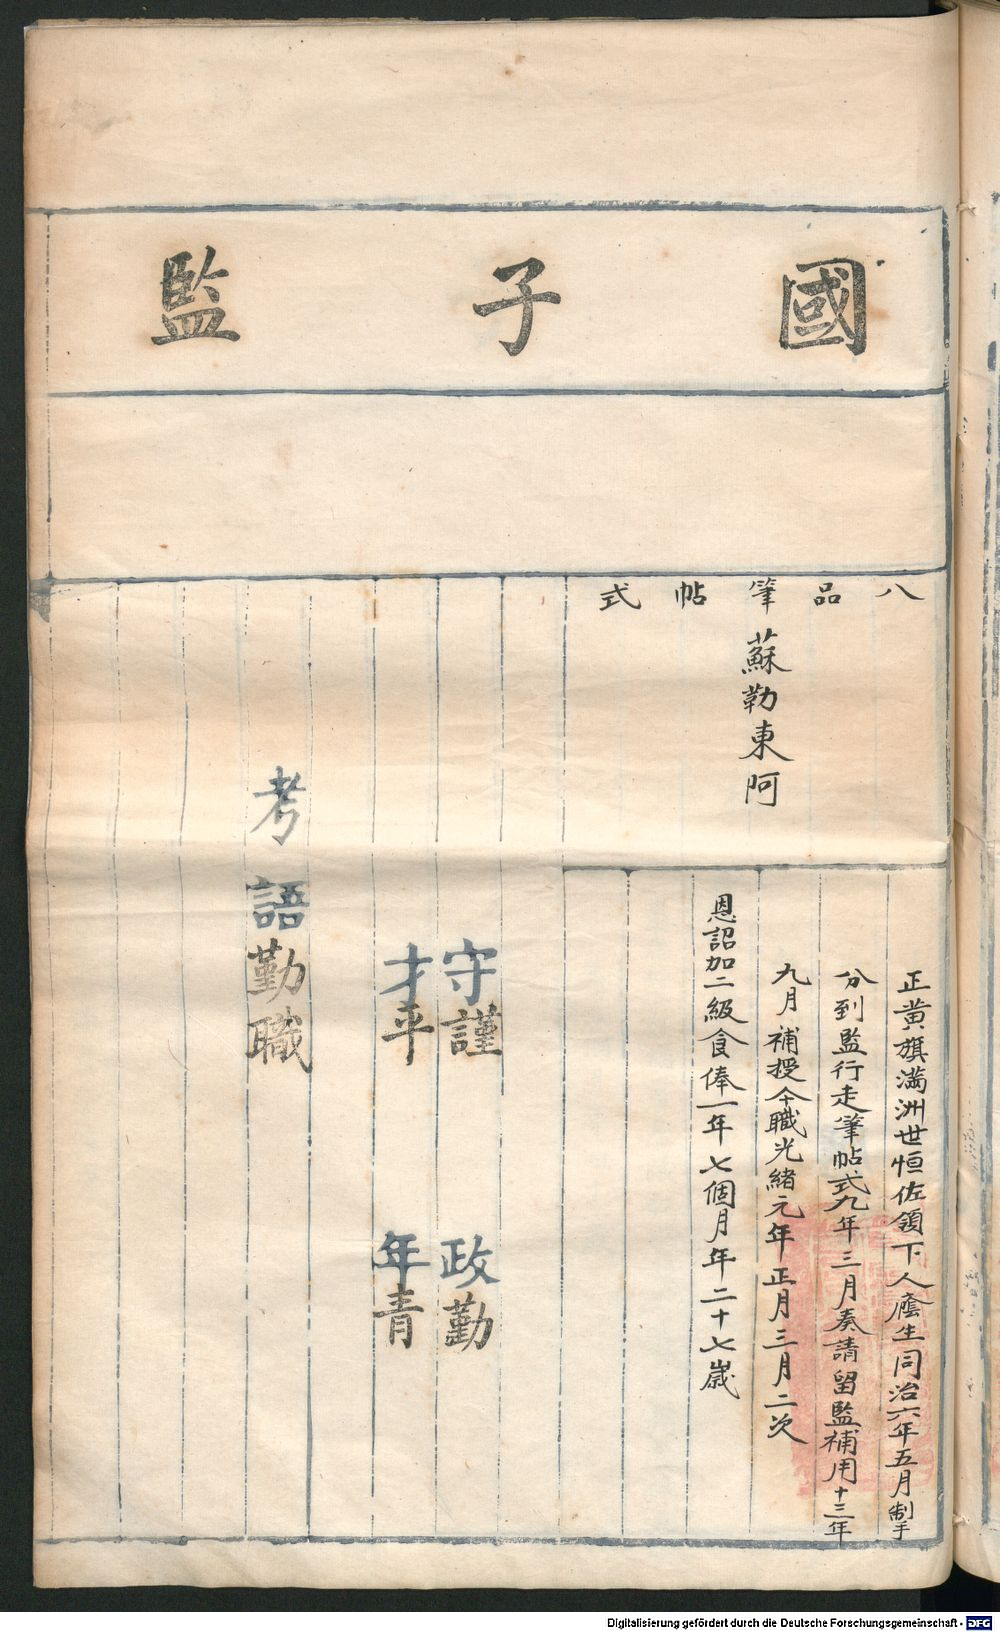 國子監
八品筆帖式
蘇勒東阿
正黃旗滿洲世恒佐領下人廕生同治六年五月制手
分到監行走筆帖式九年三月奏請留監補用十三年
九月補授今職光緒元年正月三月二次
恩詔加二級食俸一年七個月年二十七歲
守謹 政勤
才平 年青
考語勤職
Digitalisierung gefördert durch die Deutsche Forschungsgemeinschaft - DFG